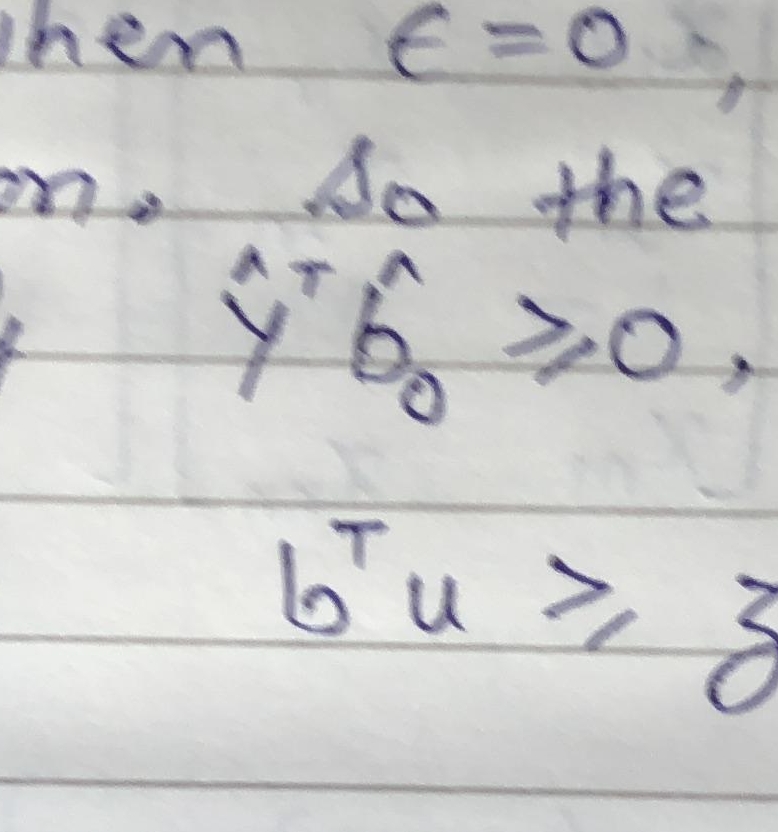 hen ϵ = 0,
on. So the
ŷᵀ b̂₀ ⩾ 0,
bᵀu ⩾ z